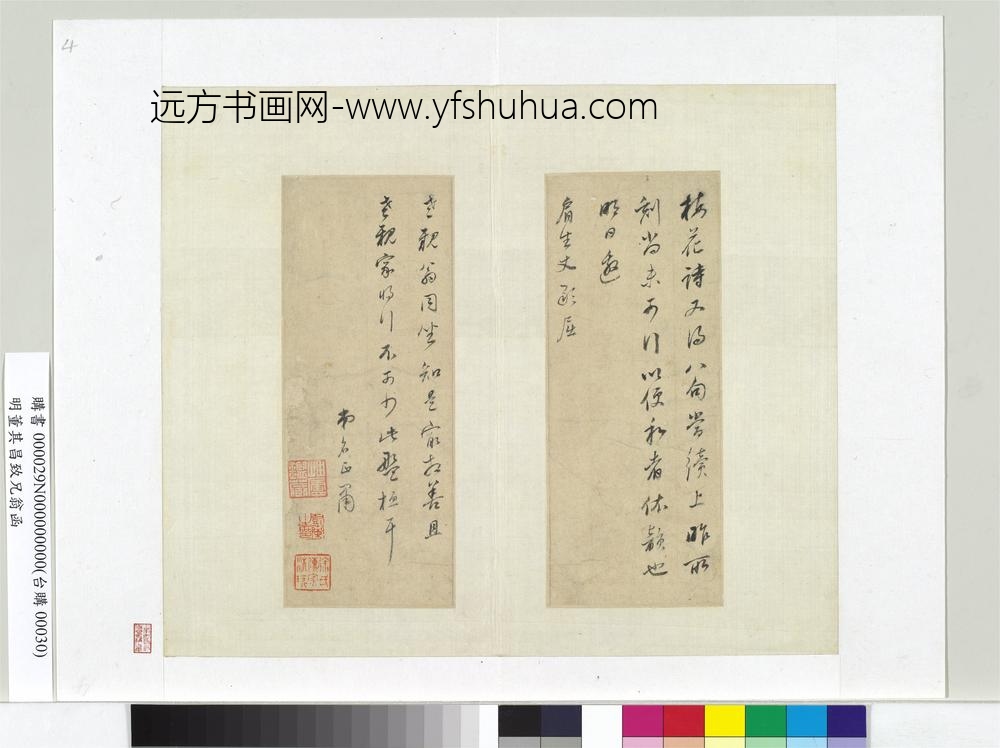 4
远方书画网-www.yfshuhua.com
梅花詩又得八句嘗續上昨所
刻尚未可行以便和者依韻也
明日邀
眉生丈
老親翁同坐知是最相善且
老親家將行不可少此盤桓耳
弟名正肅
購書 000029N000000000(台購 00030)
明董其昌致兄翁函